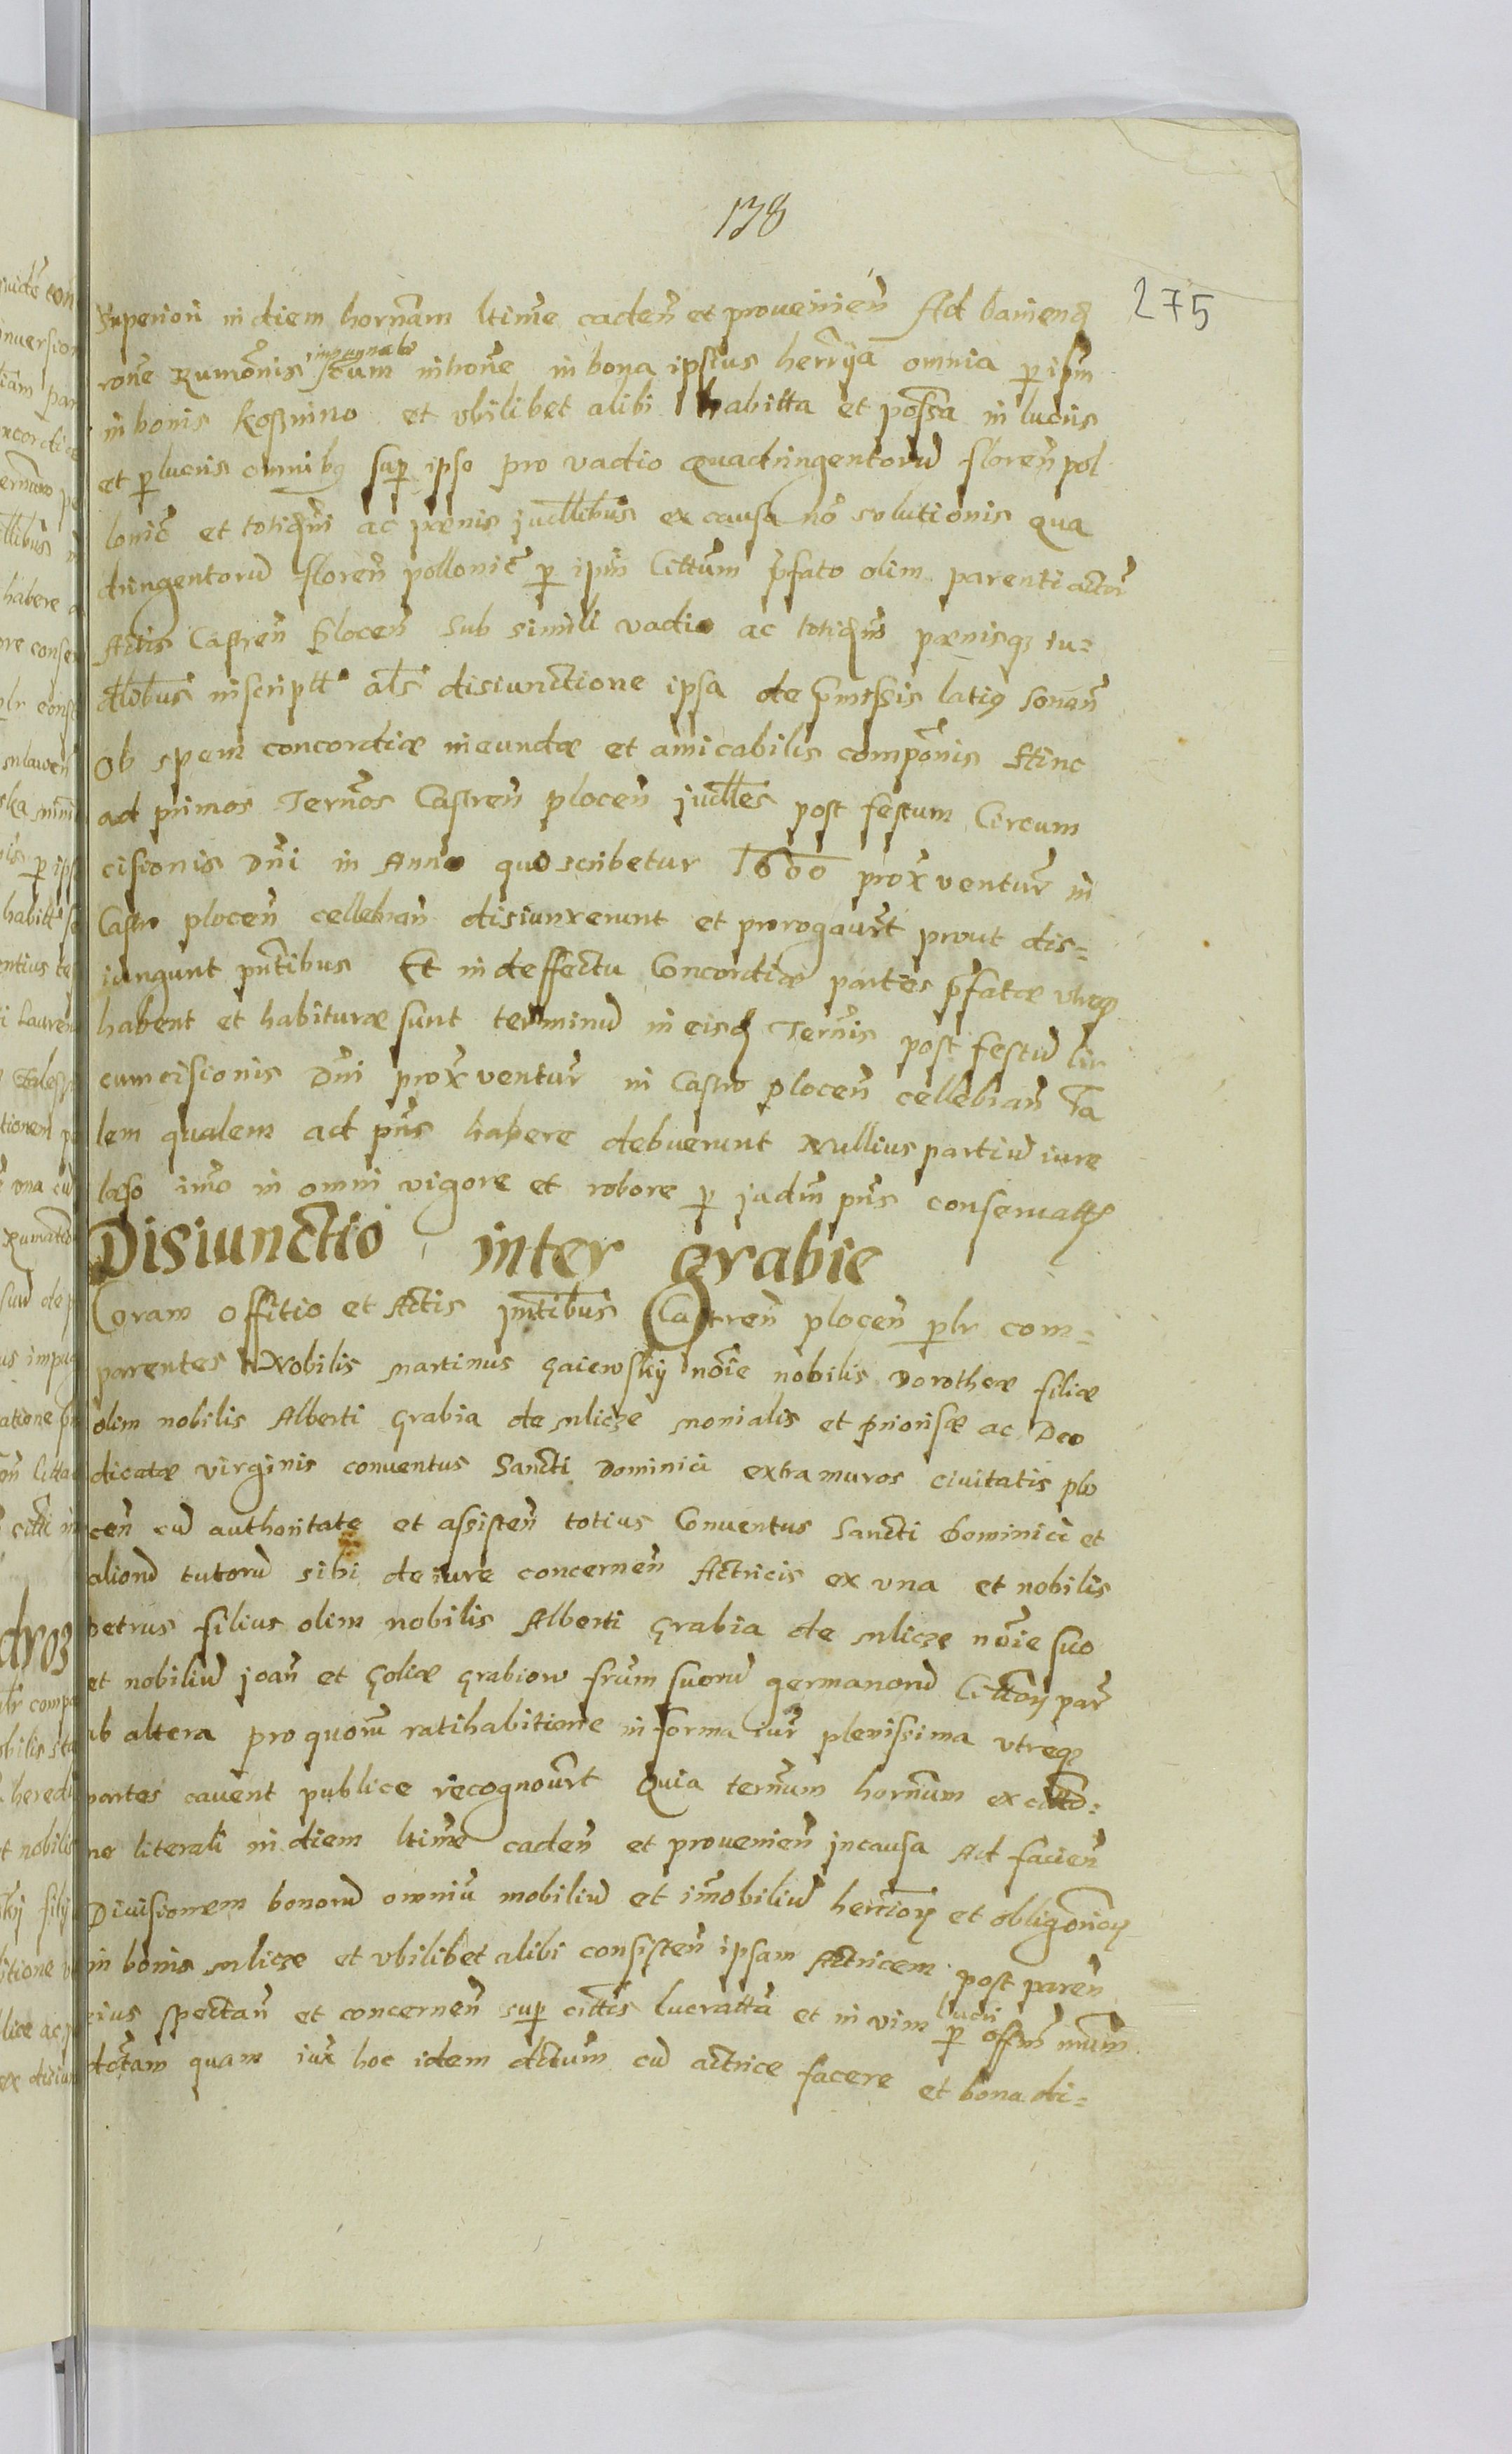 138
275
Superiori in diem hornam ltime caden et provenien Ad
rone Rumonis impugnato cum in bona ipsius herrya omnia p ipm
in bonis Rossnino et vbilibet alibi habitta et possa in lucris
et p lucris omnibq sup ipso pro vadio Quadringentoru floren pol
lonic et totiqm ac pœnis judllibus ex causa no solutionis qua
dringentoru floren pollonic p ipm Cittum pfato olim parenti actor
Actis Castren Plocen sub simili vadio ac totiqm pœnisq iu=
dlibus inscriptt als disiunctione ipsa de pmissis latiq sonan
Ob spem concordiæ ineundæ et amicabilis componis Hinc
ad primos Ternos Castren plocen judlles post festum Circum
cisionis Dni in Anno quo scribetur 1600 prox ventur in
Castro plocen cellebran disiunxerunt et prorogaurt prout dis=
iungunt pntibus Et in deffectu Concordiæ partes pfatæ vtreq
habent et habituræ sunt terminu in eisd Ternis post festu Cir
cumcisionis Dni prox ventur in Castro plocen cellebran Ta
lem qualem ad pns habere debuerunt Nullius partiu iure
læso imo in omni vigore et robore p iadm pns conseruatt
Disiunctio inter Grabie
Coram Offitio et Actis pntibus Castren plocen plr com=
parentes Nobilis Martinus Gaiewskÿ noie nobilis Dorotheæ filiæ
olim nobilis Alberti Grabia de Mlicze monialis et priorisæ ac Deo
dicatæ virginis conuentus Sancti Dominici extra muros ciuitatis plo
cen cu authoritate et assisten totius Conuentus Sancti Dominici et
alioru tutoru sibi de iure concernen Actricis ex vna et nobilis
petrus filius olim nobilis Alberti Grabia de Mlicze noie suo
et nobiliu joan et Goliæ Grabiow frum suoru germanoru Citton par
ab altera pro quoru ratihabitione in forma iur plenissima vtreq
partes cauent publice recognourt Quia ternum hornum ex citto=
ne literali in diem ltime caden et provenien in causa Ad facien
Diuisionem bonoru omniu mobiliu et imobiliu et
in bonis Mlicze et vbilibet alibi consisten ipsam Actricem post paren
eius spectan et concernen sup cittis lucratta et in vim lucri p offm nrum
dctam quam iux hoc idem dctum cu actrice facere et bona di=